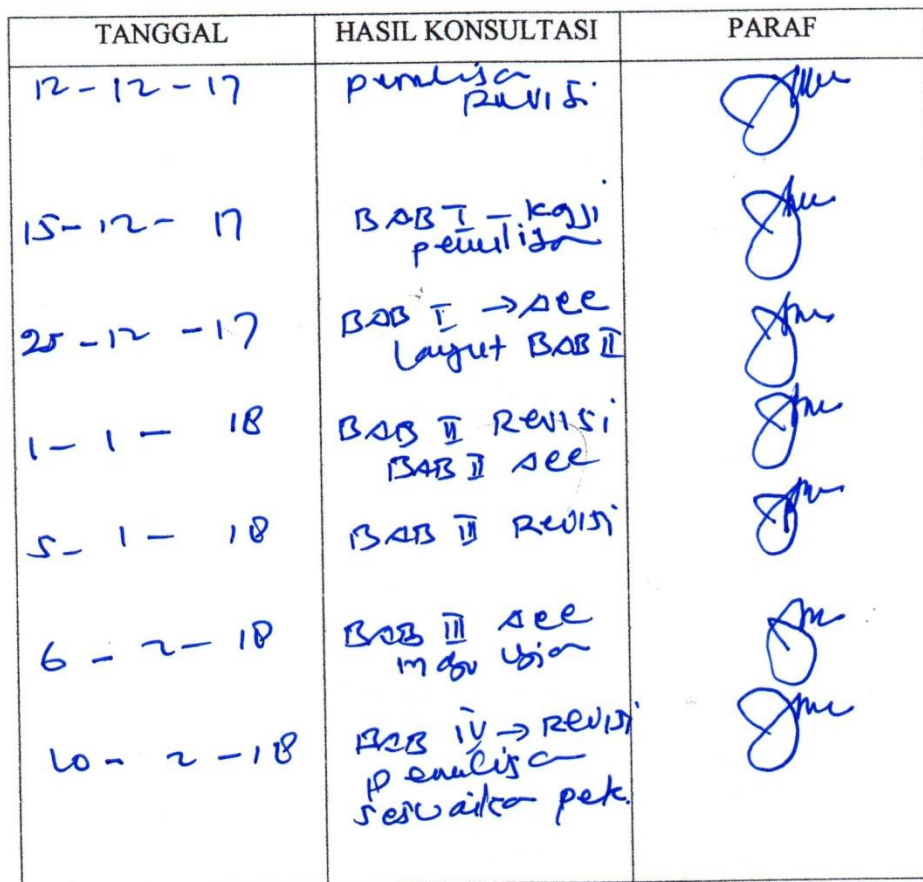 TANGGAL HASIL KONSULTASI PARAF
12 - 12 - 17 penulisa
Revisi
15 - 12 - 17 BAB I - kaji
penulisa
25 - 12 - 17 BAB I → Acc
Lanjut BAB II
1 - 1 - 18 BAB II Revisi
BAB II Acc
5 - 1 - 18 BAB III Revisi
6 - 2 - 18 BAB III Acc
maju ujian
10 - 2 - 18 BAB IV → Revisi
penulisa
sesuaika pek.